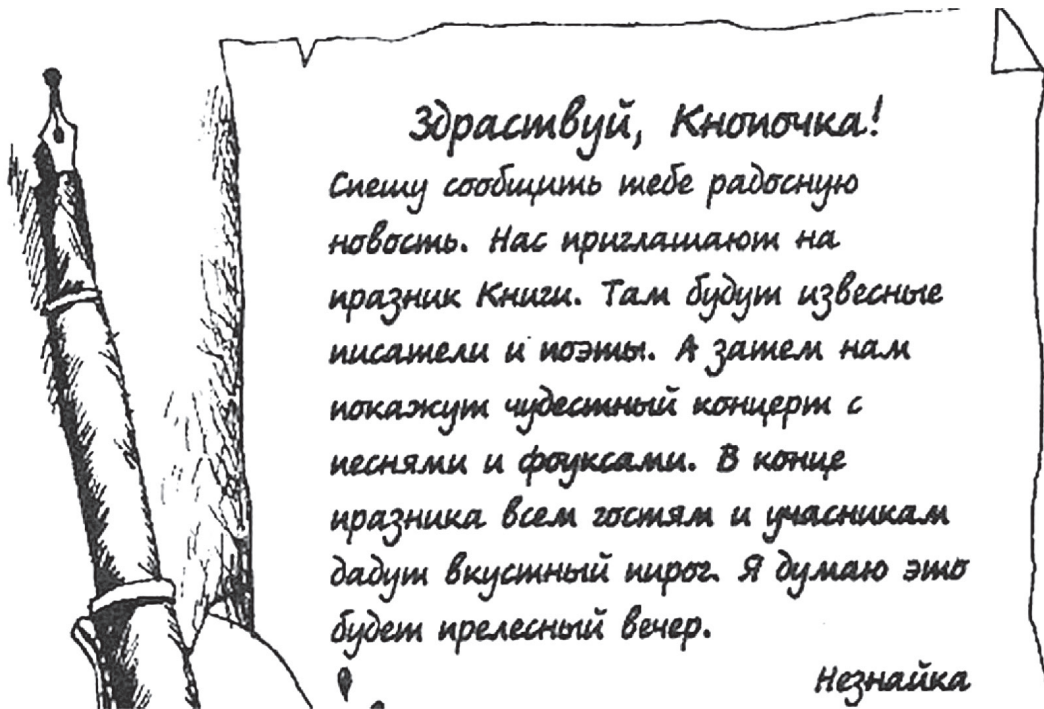 Здраствуй, Кнопочка!
Спешу сообщить тебе радосную
новость. Нас приглашают на
празник Книги. Там будут извесные
писатели и поэты. А затем нам
покажут чудестный концерт с
песнями и фоуксами. В конце
празника всем гостям и учасникам
дадут вкустный пирог. Я думаю это
будет прелесный вечер.
Незнайка